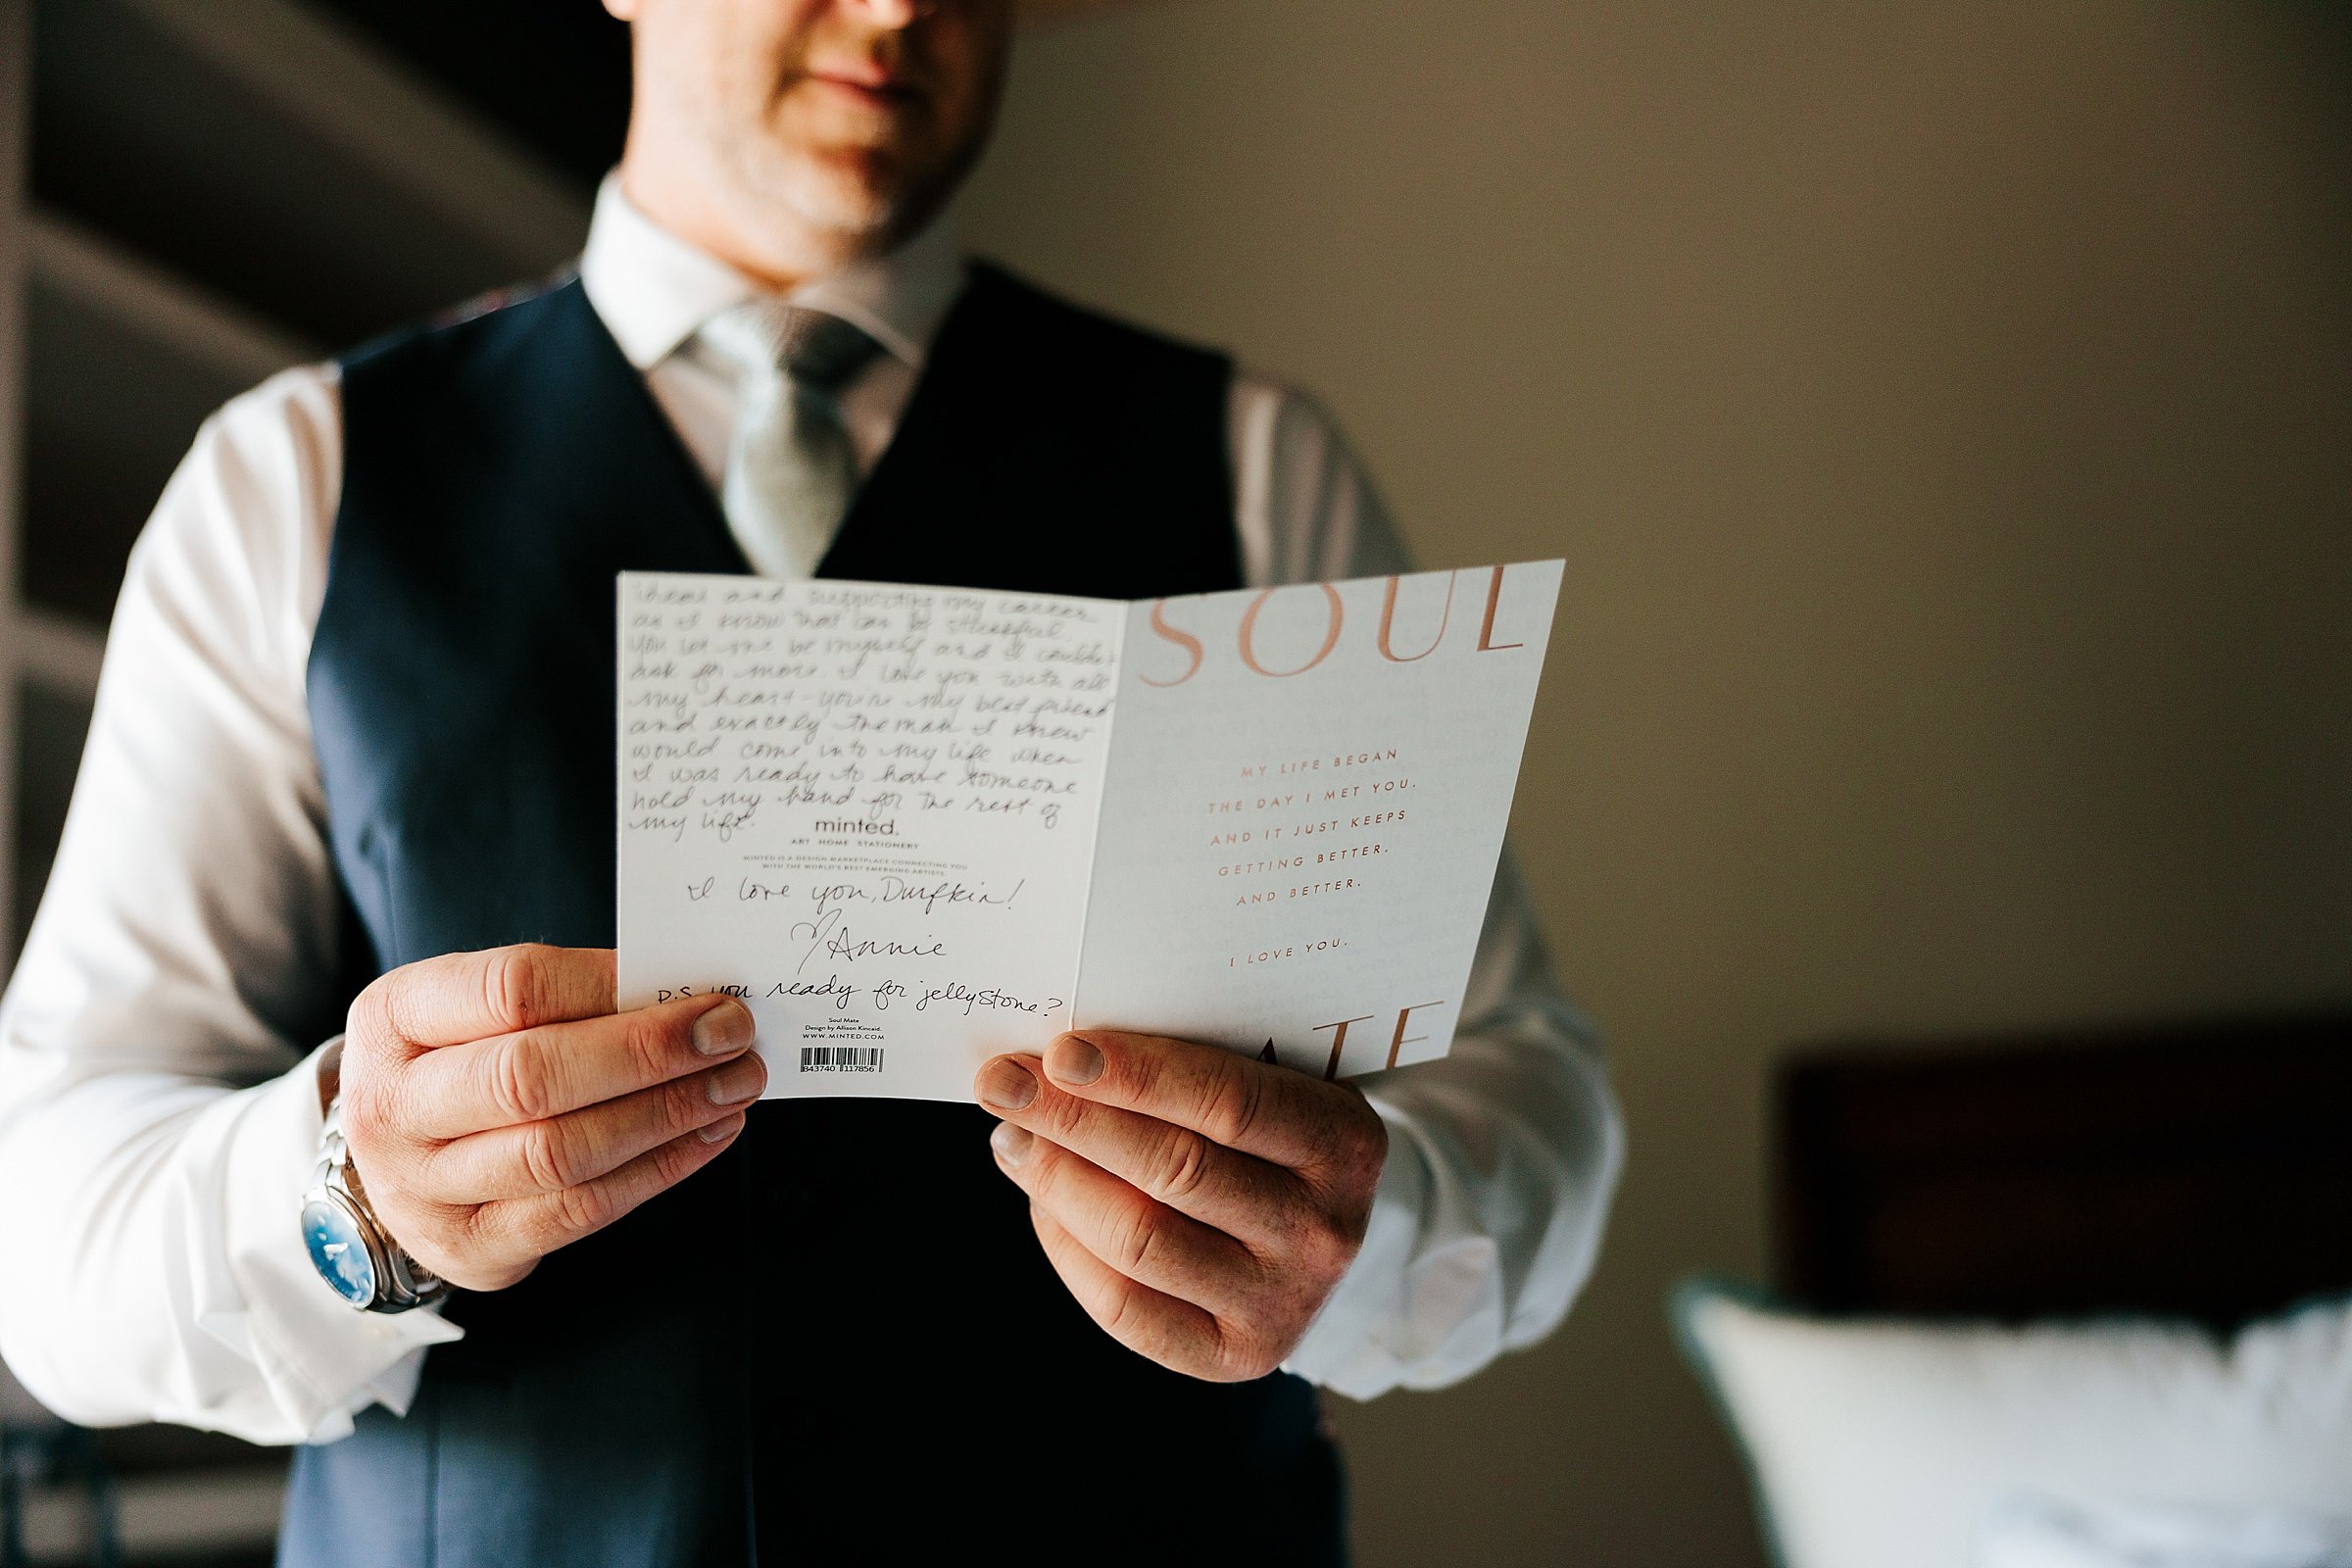 ideas and supporting my career
as I know that can be stressful.
You let me be myself and I couldn't
ask for more. I love you with all
my heart - you're my best friend
and exactly the man I knew
would come into my life when
I was ready to have someone
hold my hand for the rest of
my life.
minted.
ART HOME STATIONERY
MINTED IS A DESIGN MARKETPLACE CONNECTING YOU
WITH THE WORLD'S BEST EMERGING ARTISTS.
I love you, Durfkin!
Annie
P.S. you ready for jellystone?
Soul Mate
Design by Allison Kincaid.
WWW.MINTED.COM
843740 117856
SOUL
MY LIFE BEGAN
THE DAY I MET YOU.
AND IT JUST KEEPS
GETTING BETTER.
AND BETTER.
I LOVE YOU.
ATE